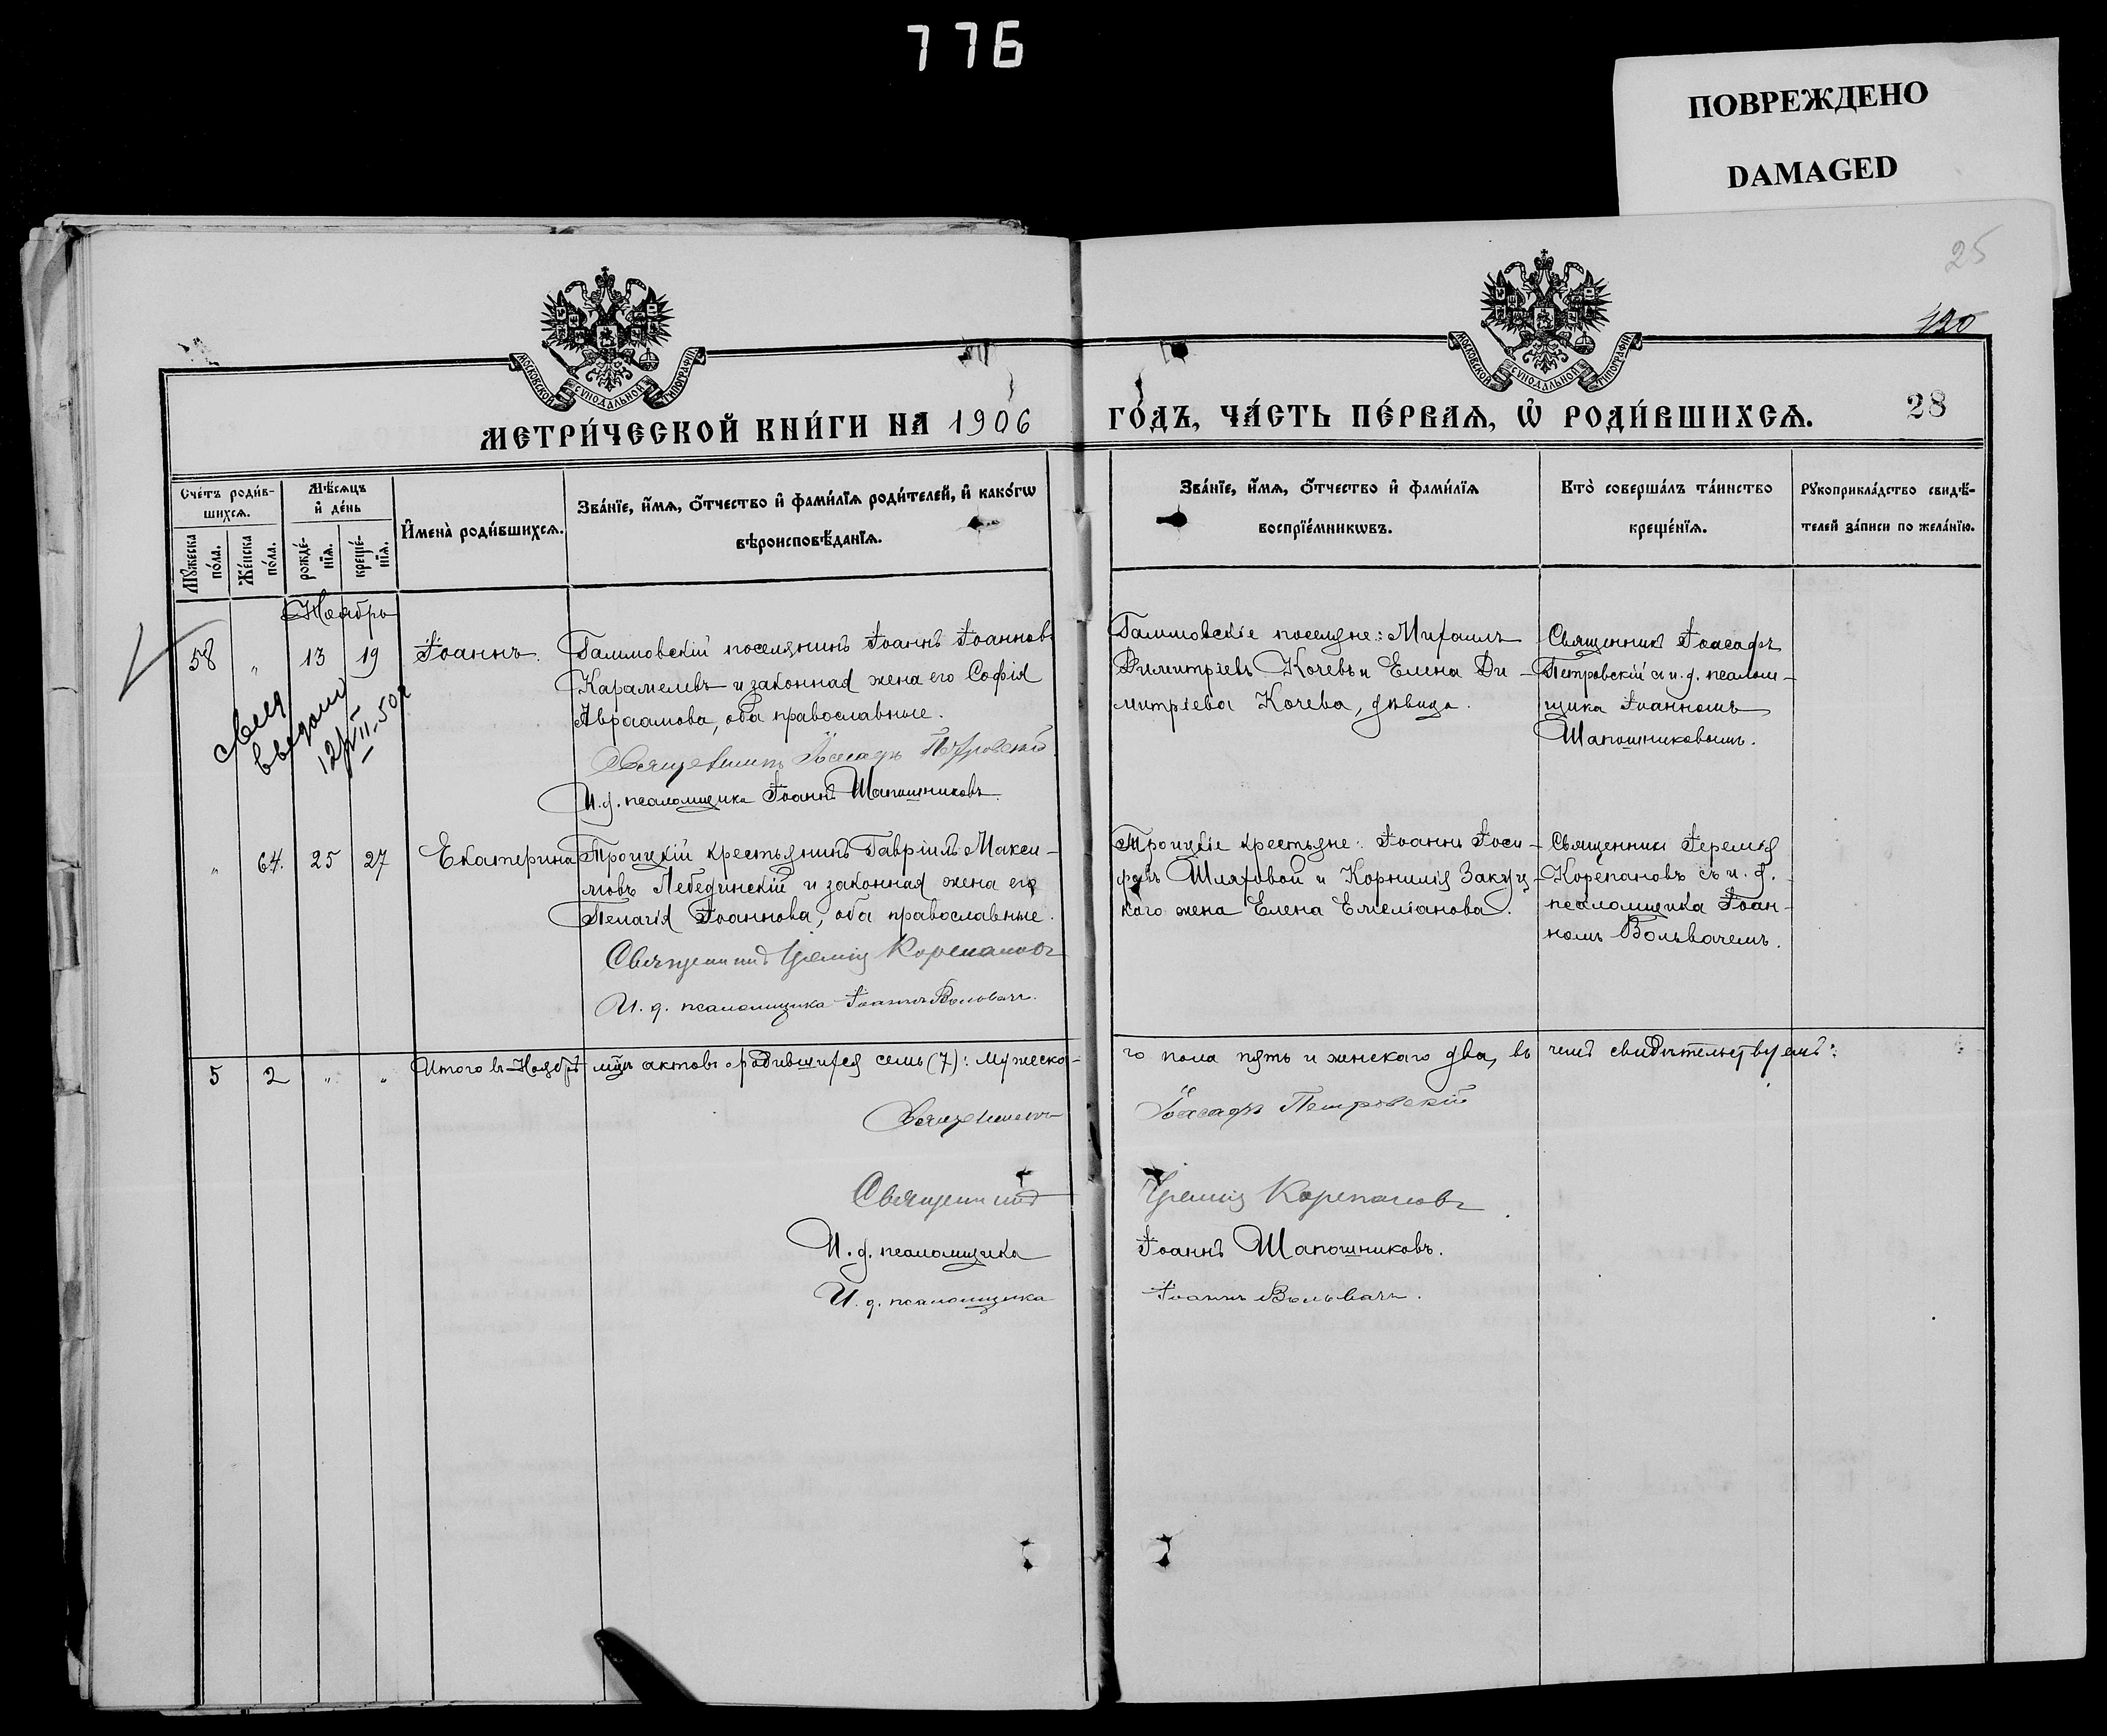 776
ПОВРЕЖДЕНО
DAMAGED
25
120
МОСКОВСКОЙ СѴНОДАЛЬНОЙ ТИПОГРАФІИ
МОСКОВСКОЙ СѴНОДАЛЬНОЙ ТИПОГРАФІИ
МЕТРИ́ЧЕСКОЙ КНИ́ГИ НА 1906
ГО́ДЪ, ЧА́СТЬ ПЕ́РВАѦ, Ѡ҆ РОДИ́ВШИХСѦ.
28
Сче́тъ роди́в-
шихсѧ.
Мꙋжеска по́ла.
Же́нска по́ла.
Мѣ́сѧцъ и҆ де́нь
рожде́-нїѧ.
креще́-нїѧ.
И҆мена̀ роди́вшихсѧ.
Зва́нїе, и҆́мѧ, ѻ҆́тчество и҆ фами́лїѧ роди́телей, и҆ како́гѡ
вѣроисповѣ́данїѧ.
Зва́нїе, и҆́мѧ, ѻ҆́тчество и҆ фами́лїѧ
воспрїе́мникѡвъ.
Кто̀ соверша́лъ та́инство
креще́нїѧ.
Рꙋкоприкла́дство свидѣ́-
телей за́писи по жела́нїю.
Ноябрь
58 " 13 19 Іоаннъ.
Галмовскій поселянинъ Іоаннъ Іоанновъ
Карамелевъ и законная жена его Софія
Авраамова, оба православные.
Священникъ Іоасафъ Петровскій
И. д. псаломщика Іоаннъ Шапошниковъ.
12/VII-50г
Галмовскіе поселяне: Михаилъ
Димитріевъ Кочевъ и Елена Ди-
митріева Кочева, дѣвица.
Священникъ Іоасафъ
Петровскій съ и. д. псалом-
щика Іоанномъ
Шапошниковымъ.
" 64. 25 27 Екатерина
Троицкій крестьянинъ Гавріилъ Макси-
мовъ Лебединскій и законная жена его
Пелагія Іоаннова, оба православные.
Священникъ Іеремія Корепановъ
И. д. псаломщика Іоаннъ Вольвачъ.
Троицкіе крестьяне: Іоаннъ Іоси-
фовъ Шляховой и Корнилія Закуц-
каго жена Елена Емеліанова.
Священникъ Іеремія
Корепановъ съ и. д.
псаломщика Іоан-
номъ Вольвачемъ.
5 2 " " Итого въ Ноябрѣ мѣц. актовъ о родившихся семь (7): мужеска-
го пола пять и женскаго два, въ чемъ свидѣтельствуемъ:
Священникъ Іоасафъ Петровскій
Священникъ Іеремія Корепановъ.
И. д. псаломщика Іоаннъ Шапошниковъ.
И. д. псаломщика Іоаннъ Вольвачъ.